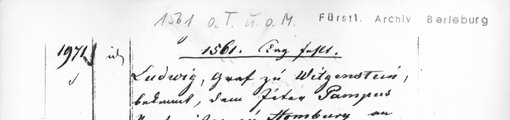 1561 o. T. u. o. M. Fürstl. Archiv Berleburg
1971 1561. Aug
Ludwig, Graf zu Witgenstein,
bekennt, dem Peter Pampus
Homburg an